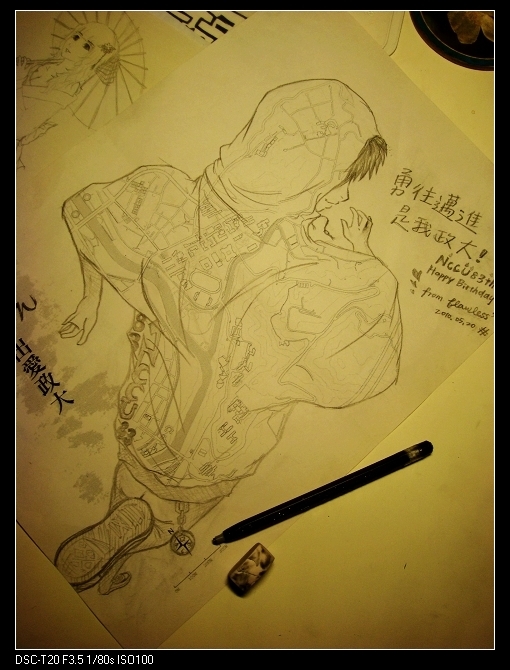 勇往邁進
是我政大!
NCCU 83th
Happy Birthday
from flawless
2010.05.20
愛政大
N
DSC-T20 F3.5 1/80s ISO100